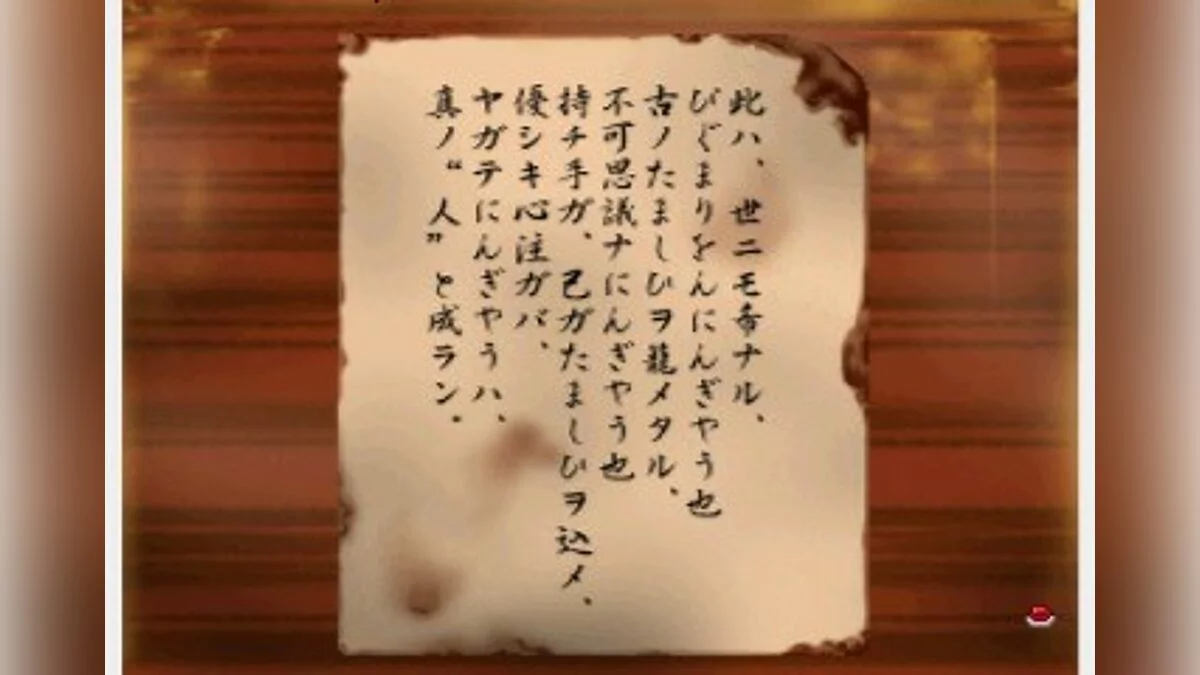 此ハ、世ニモ奇ナル、
びぐまりをんにんぎやう也
古ノたましひヲ籠メタル、
不可思議ナにんぎやう也
持チ手ガ、己ガたましひヲ込メ、
優シキ心注ガバ、
ヤガテにんぎやうハ、
真ノ“人”と成ラン。